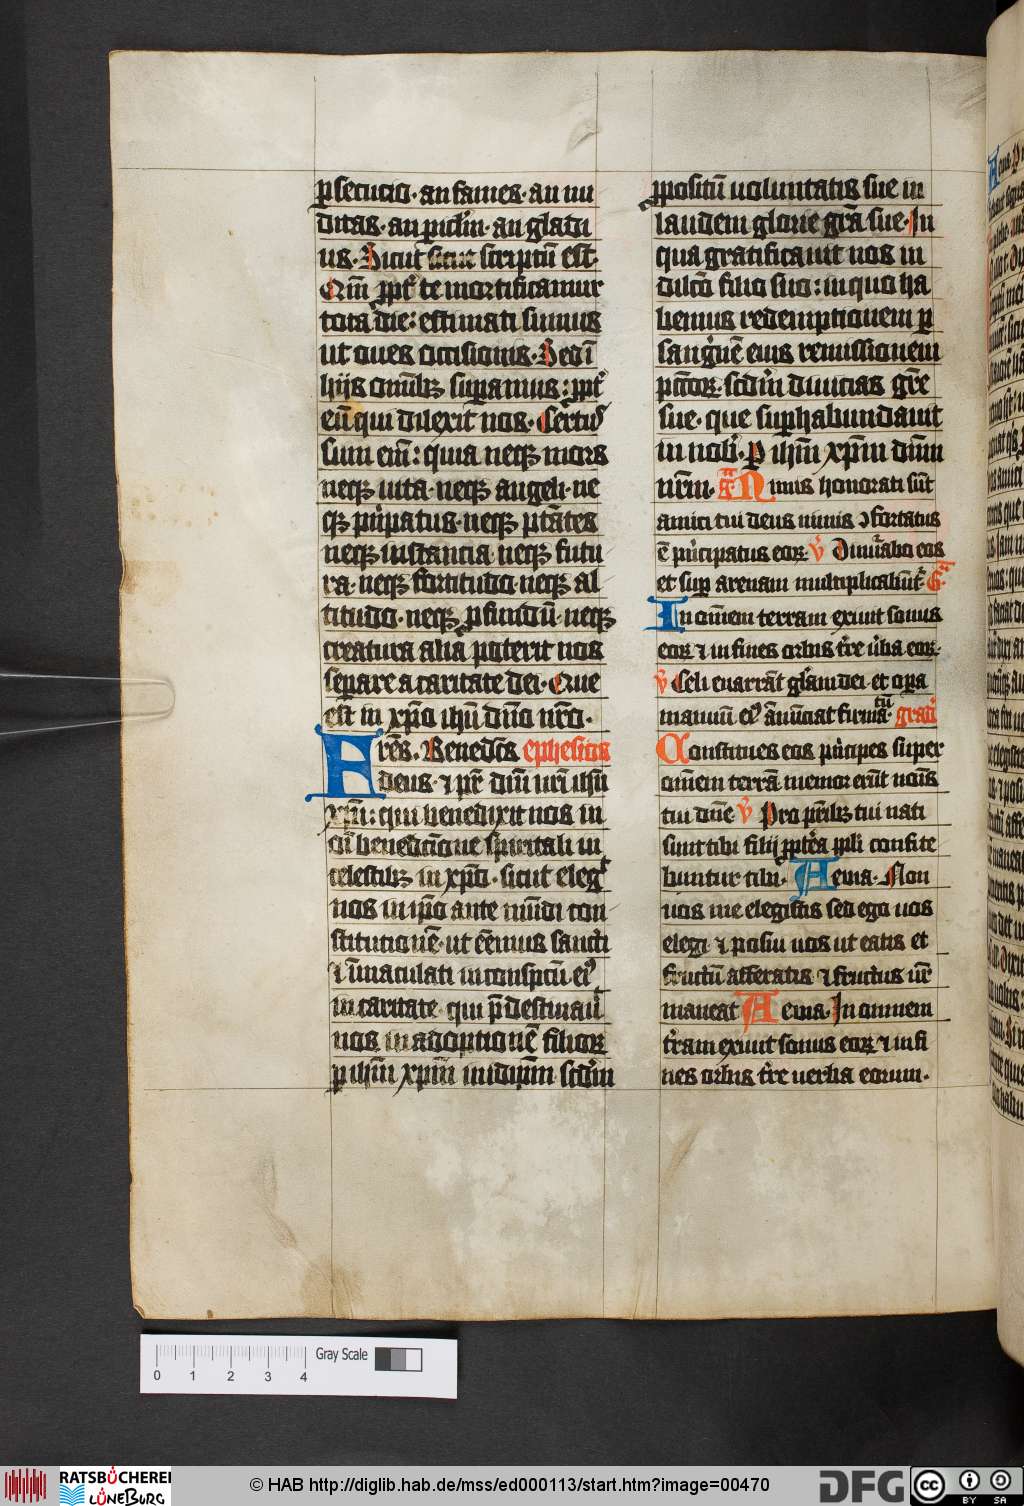 psecucio. an fames. an nu
ditas. an piclm. an gladi
us. Sicut scriptū est.
Qm̄ ppt te mortificamur
tota die: estimati sumus
ut oues occisionis. Sed ī
hijs omīb3 supamus: ppt
eū qui dilexit nos. Certus
sum em̄: quia neq3 mors
neq3 uita. neq3 angeli. ne
q3 pncipatus. neq3 ptātes
neq3 instancia. neq3 futu
ra. neq3 fortitudo. neq3 al
titudo. neq3 pfundū. neq3
creatura alia poterit nos
separe a caritate dei. Que
est in xp̄o ihū dn̄o nr̄o.
Fres. Benedcs ephesios
deus. ⁊ pr̄ dn̄i nr̄i ihū
xp̄i: qui benedixit nos in
oī benedictione spiritali in
celestib3 in xp̄o. sicut eleḡt
nos in ipō ante mūdi con
stitutionē. ut eēmus sancti
⁊ īmaculati in conspctū ei9
in caritate. qui p̄destinauit
nos in adoptionē filiorꝝ
p ihm xp̄m in idipm̄. scdm
ppositū uoluntatis sue in
laudem glorie grā sue. In
qua gratificauit nos in
dilcō filio suo: in quo ha
bemus redemptionem p
sanguēē eius remissionem
pctōrꝝ. scdm diuicias grē
sue. que suphabundauit
in nobis. P ihm xp̄m dnm
nrm. GR Nimis honorati sūt
amici tui deus nimis ɔfortatus
ē pncipatus eorꝝ. V Dinūabo eos
et sup arenam multiplicabūtr. GR
In om̄em terram exiuit sonus
eorꝝ ⁊ in fines orbis tre uba eorꝝ.
V Celi enarrāt glām dei. et opa
manuū ei9 ānūciat firmamtū. grad
Constitues eos pncipes super
om̄em terrā memor erūt nōis
tui dn̄e V Pro prīb3 tui nati
sunt tibi filij pptea ppli confite
buntur tibi. Aeuia. Non
uos me elegistis sed ego uos
elegi ⁊ posui uos ut eatis et
fructū afferatis ⁊ fructus ur̄
maneat Aeuia. In omnem
tram exiuit sonus eorꝝ ⁊ in fi
nes orbis tre uerba eorum.
Gray Scale
0 1 2 3 4
RATSBÜCHEREI
LÜNEBURG
© HAB http://diglib.hab.de/mss/ed000113/start.htm?image=00470
DFG
cc BY SA